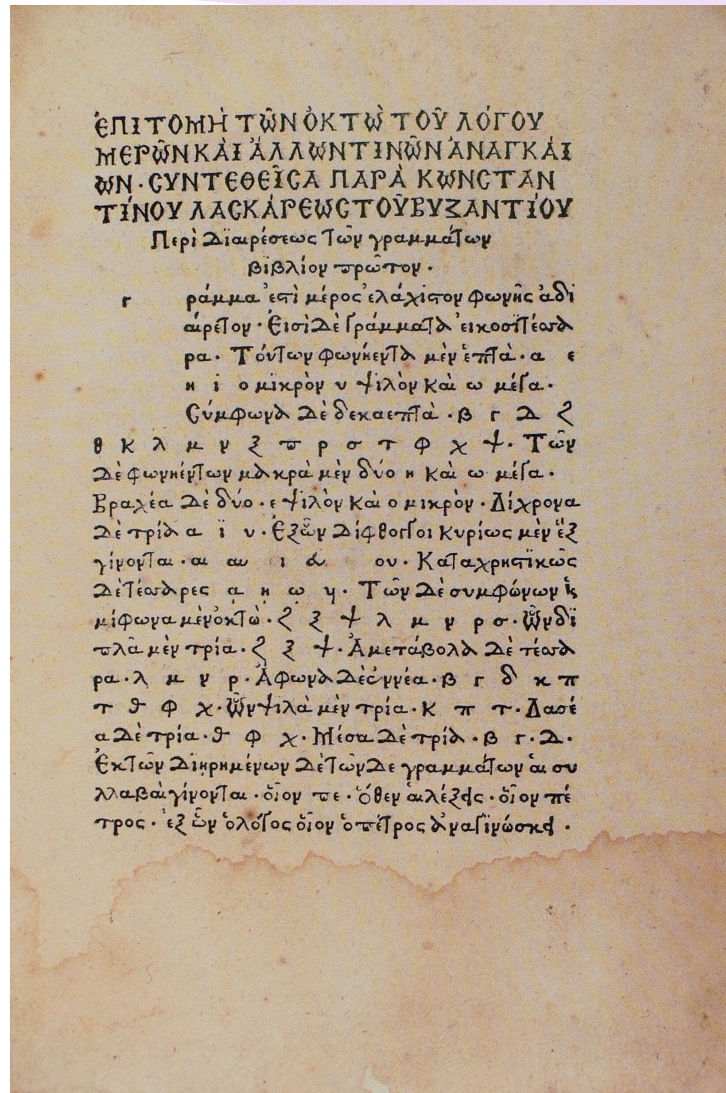 ἘΠΙΤΟΜῊ ΤΩ͂Ν ὈΚΤῺ ΤΟΥ͂ ΛΌΓΟΥ
ΜΕΡΩ͂Ν ΚΑῚ ἌΛΛΩΝ ΤΙΝΩ͂Ν ἈΝΑΓΚΑΊ
ΩΝ · ϹΥΝΤΕΘΕΙ͂ϹΑ ΠΑΡᾺ ΚΩΝϹΤΑΝ
ΤΊΝΟΥ ΛΑϹΚΆΡΕΩϹ ΤΟΥ͂ ΒΥΖΑΝΤΊΟΥ
Περὶ Διαιρέσεως τῶν γραμμάτων
βιβλίον πρῶτον ·
γ ράμμα ἐστὶ μέρος ἐλάχιστον φωνῆς ἀδι
αίρετον · Εἰσὶ Δὲ γράμματα εἰκοσιτέσσα
ρα · Τούτων φωνήεντα μὲν ἑπτὰ · α ε
η ι ο μικρὸν υ ψιλὸν καὶ ω μέγα ·
Σύμφωνα Δὲ δεκαεπτὰ · β γ Δ ζ
θ κ λ μ ν ξ π ρ σ τ φ χ ψ · Τῶν
Δὲ φωνηέντων μακρὰ μὲν δύο η καὶ ω μέγα ·
Βραχέα Δὲ δύο · ε ψιλὸν καὶ ο μικρὸν · Δίχρονα
Δὲ τρία α ϊ υ · Ἐξ ὧν Δίφθογγοι κυρίως μὲν ἓξ
γίνονται · αι αυ ει ευ οι ου · Καταχρηστικῶς
Δὲ τέσσαρες ᾳ ῃ ῳ υι · Τῶν Δὲ συμφώνων ἡ
μίφωνα μὲν ὀκτὼ · ζ ξ ψ λ μ ν ρ σ · Ὧν δι
πλᾶ μὲν τρία · ζ ξ ψ · Ἀμετάβολα Δὲ τέσσα
ρα · λ μ ν ρ · Ἄφωνα Δὲ ἐννέα · β γ δ κ π
τ θ φ χ · Ὧν ψιλὰ μὲν τρία · κ π τ · Δασέ
α Δὲ τρία · θ φ χ · Μέσα Δὲ τρία · β γ · Δ ·
Ἐκ τῶν Διῃρημένων Δὲ τῶνδε γραμμάτων αἱ συ
λλαβαὶ γίνονται · οἷον πε · ὅθεν αἱ λέξεις · οἷον πέ
τρος · ἐξ ὧν ὁ λόγος οἷον ὁ πέτρος ἀναγινώσκει ·